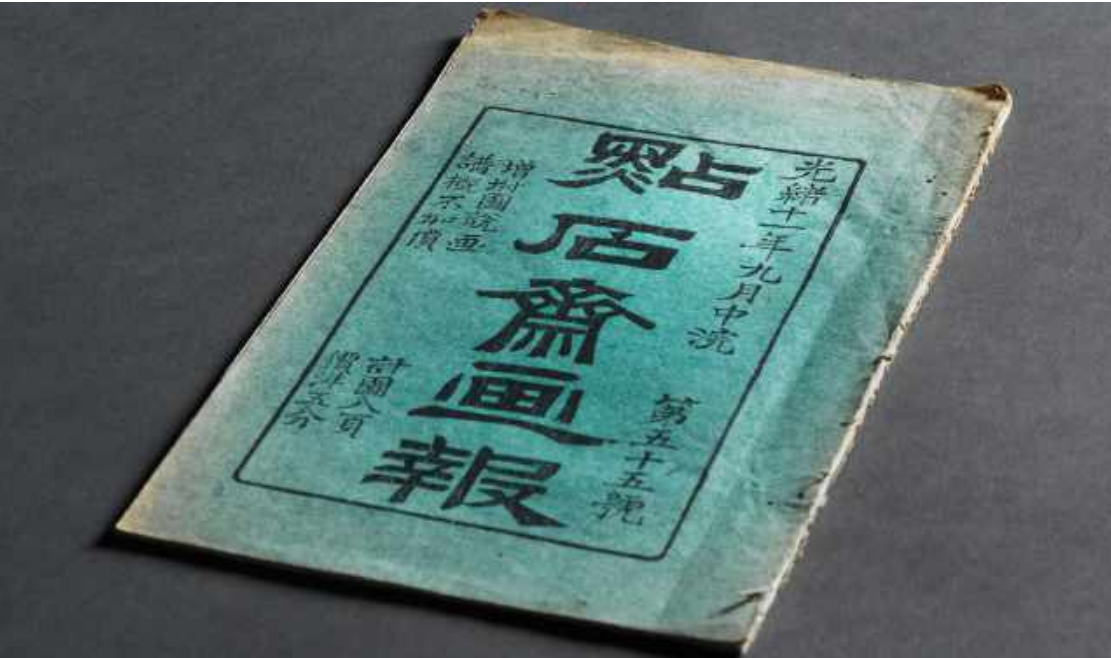 光緒十一年九月中浣
第五十五號
點石齋画報
增坿圖說画
譜概不加價
計圖八頁
價洋五分